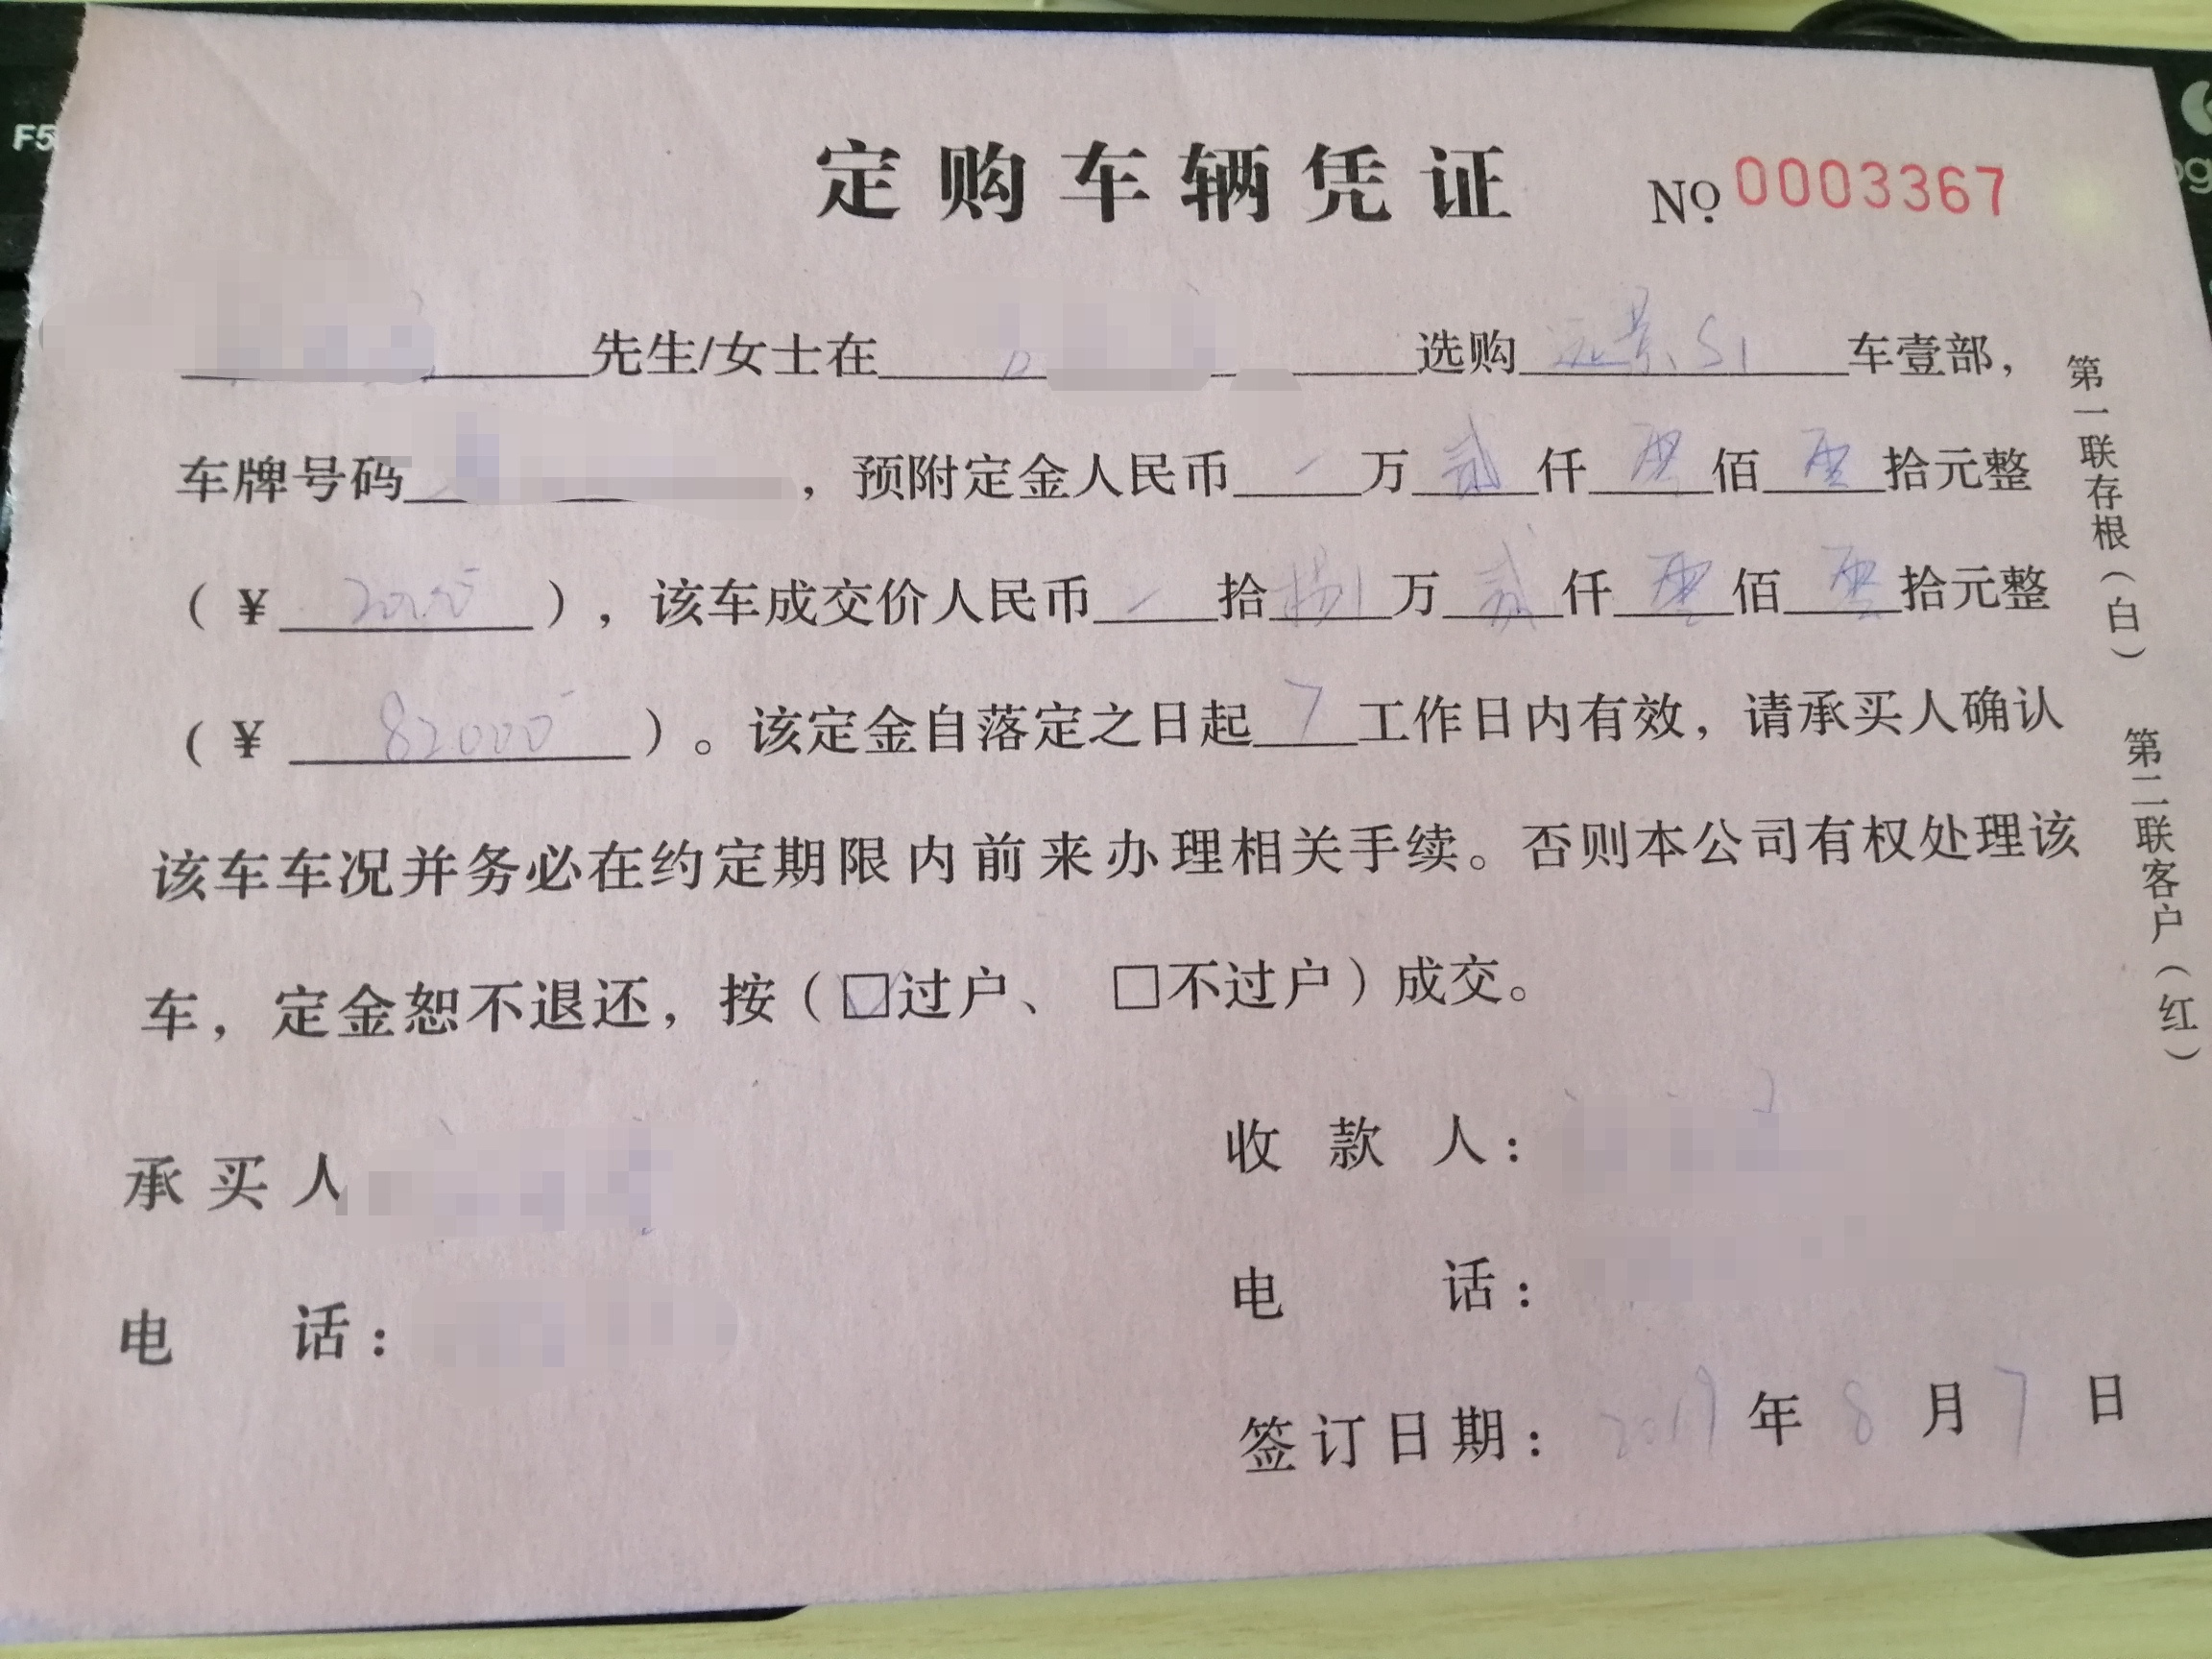 F5
定购车辆凭证 No. 0003367
先生/女士在 选购 远景S1 车壹部，
车牌号码 ，预附定金人民币 一 万 贰 仟 零 佰 零 拾元整
（¥ 2000 ），该车成交价人民币 一 拾 捌 万 贰 仟 零 佰 零 拾元整
（¥ 82000 ）。该定金自落定之日起 7 工作日内有效，请承买人确认
该车车况并务必在约定期限内前来办理相关手续。否则本公司有权处理该
车，定金恕不退还，按（☑过户、 □不过户）成交。
承买人
收款人：
电话：
电话：
签订日期： 2019 年 8 月 7 日
第一联存根（白） 第二联客户（红）